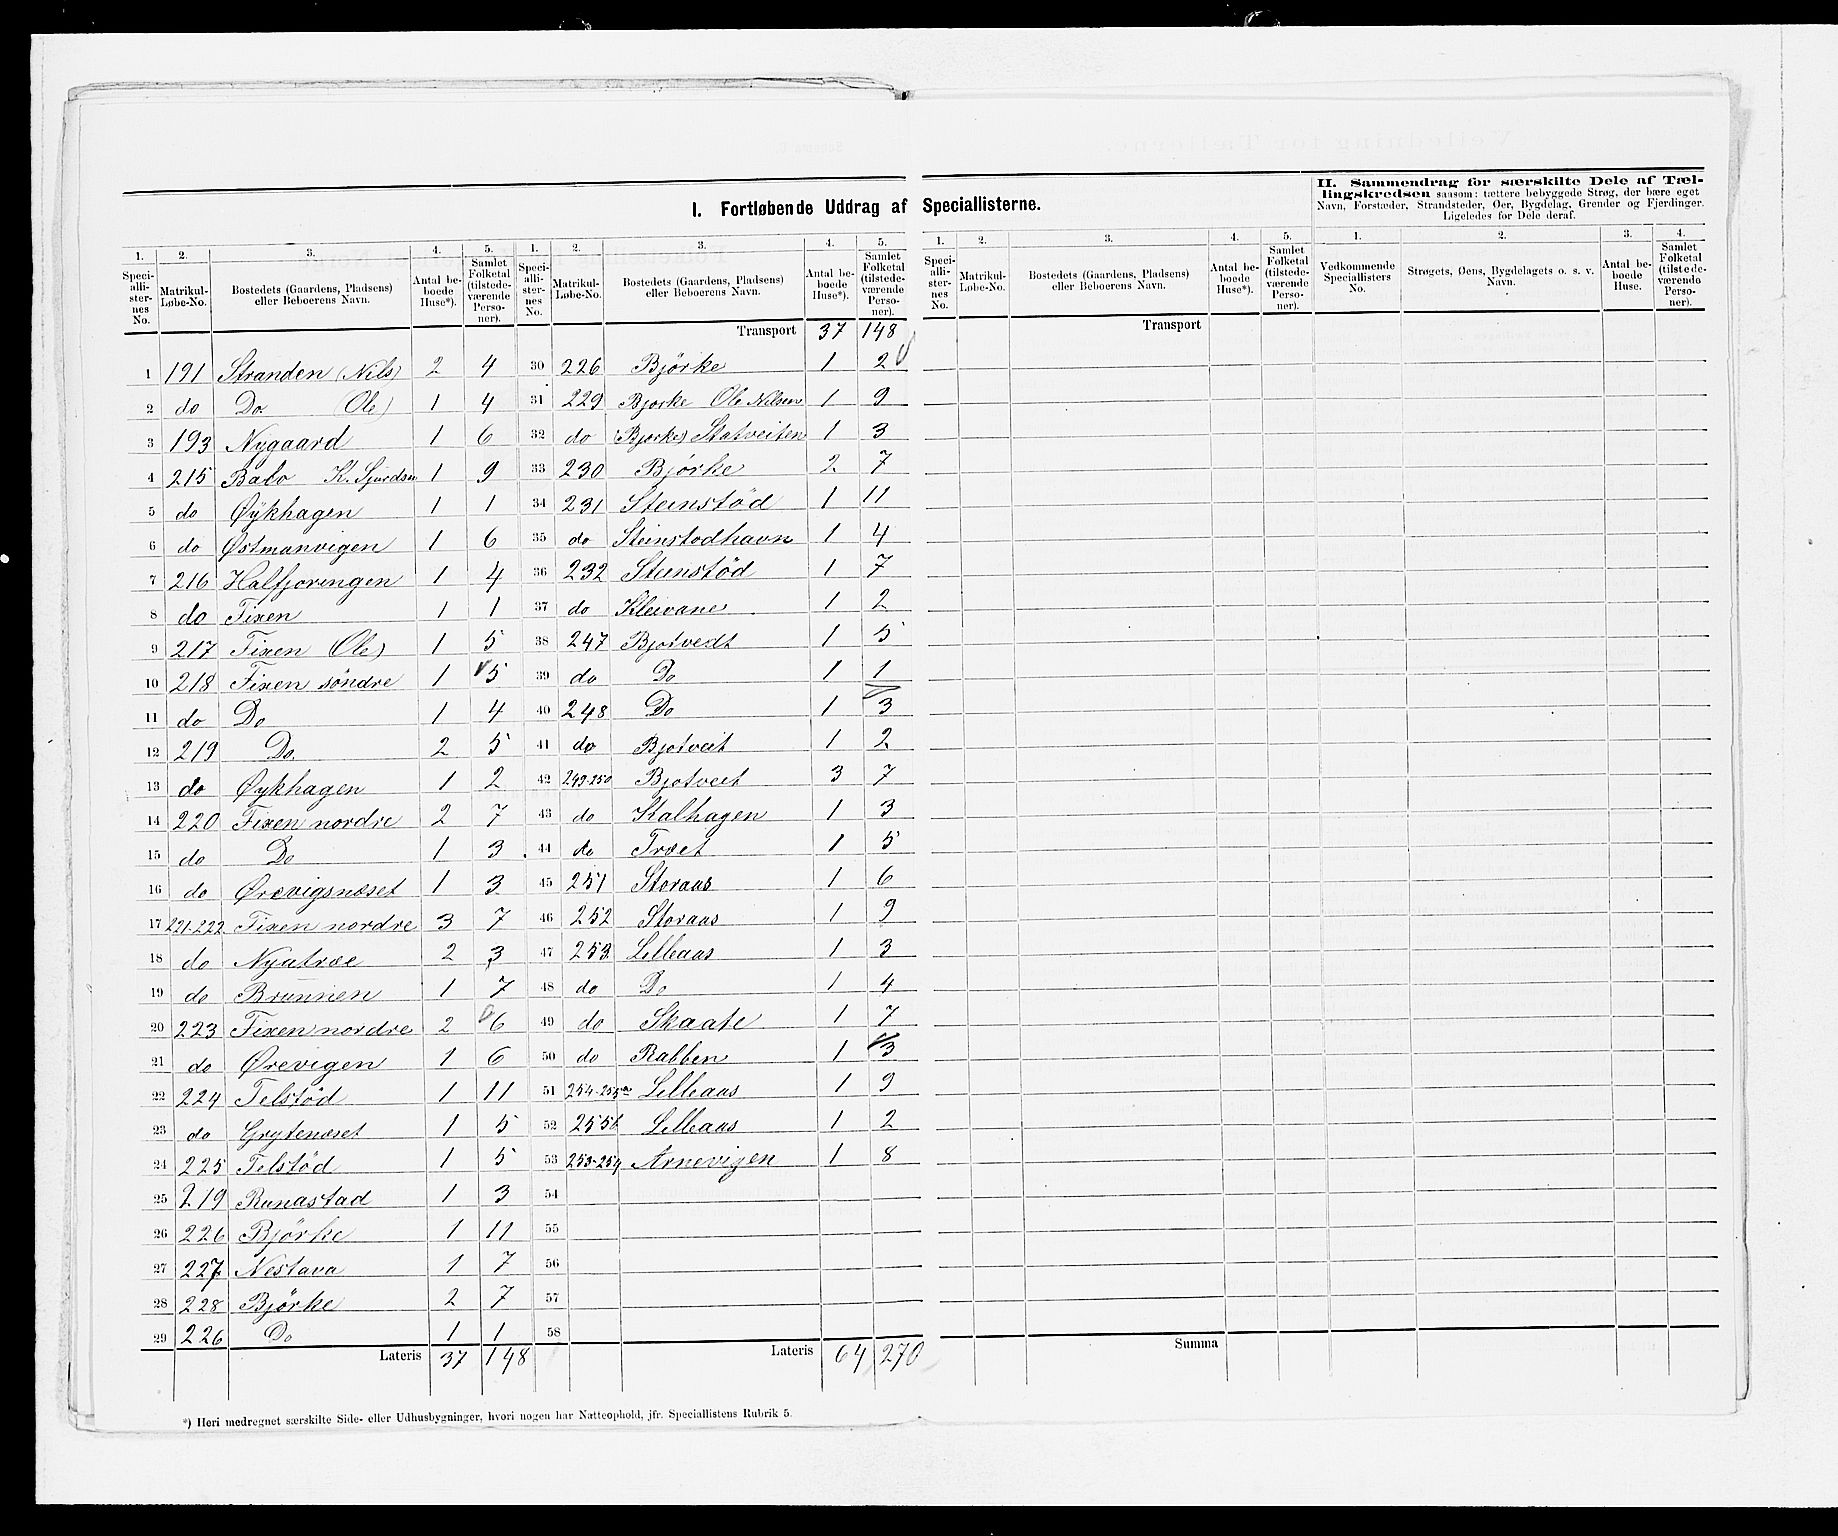 I. Fortløbende Uddrag af Speciallisterne.
II. Sammendrag for særskilte Dele af Tællingskredsen saasom: tættere bebyggede Strøg, der bære eget
Navn, Forstæder, Strandsteder, Øer, Bygdelag, Grender og Fjerdinger.
Ligeledes for Dele deraf.
1. 2. 3. 4. 5. 1. 2. 3. 4. 5. 1. 2. 3. 4. 5. 1. 2. 3. 4.
Speciallisternes No. Matrikul-Løbe-No. Bostedets (Gaardens, Pladsens) eller Beboerens Navn. Antal beboede Huse*). Samlet Folketal (tilstedeværende Personer).
Speciallisternes No. Matrikul-Løbe-No. Bostedets (Gaardens, Pladsens) eller Beboerens Navn. Antal beboede Huse*). Samlet Folketal (tilstedeværende Personer).
Speciallisternes No. Matrikul-Løbe-No. Bostedets (Gaardens, Pladsens) eller Beboerens Navn. Antal beboede Huse*). Samlet Folketal (tilstedeværende Personer).
Vedkommende Speciallisters No. Strøgets, Øens, Bygdelagets o. s. v. Navn. Antal beboede Huse. Samlet Folketal (tilstedeværende Personer).
1 191 Stranden (Nils) 2 4
2 do Do (Ole) 1 4
3 193 Nygaard 1 6
4 215 Balo K. Sjurdsen 1 9
5 do Øykhagen 1 1
6 do Østmanvigen 1 6
7 216 Halfjoringen 1 4
8 do Fixen 1 1
9 217 Fixen (Ole) 1 5
10 218 Fixen söndre 1 5
11 do Do 1 4
12 219 Do 2 5
13 do Øykhagen 1 2
14 220 Fixen nordre 2 7
15 do Do 1 3
16 do Ørevigsnæset 1 3
17 221-222 Fixen nordre 3 7
18 do Nyatræe 2 3
19 do Brunnen 1 7
20 223 Fixen nordre 2 6
21 do Ørevigen 1 6
22 224 Telstöd 1 11
23 do Grytenæset 1 5
24 225 Telstöd 1 5
25 219 Runastad 1 3
26 226 Björke 1 11
27 227 Nestava 1 7
28 228 Björke 2 7
29 226 Do 1 1
Lateris 37 148
Transport 37 148
30 226 Björke 1 2
31 229 Bjorke Ole Nilsen 1 9
32 do (Bjorke) Statveiten 1 3
33 230 Björke 2 7
34 231 Steinstöd 1 11
35 do Steinstodhavn 1 4
36 232 Steinstöd 1 7
37 do Kleivane 1 2
38 247 Bjotvedt 1 5
39 do Do 1 1
40 248 Do 1 3
41 do Bjotveit 1 2
42 249-250 Bjotveit 3 7
43 do Kalhagen 1 3
44 do Træet 1 5
45 251 Storaas 1 6
46 252 Storaas 1 9
47 253 Lilleaas 1 3
48 do Do 1 4
49 do Skaate 1 7
50 do Rabben 1 3
51 254-255a Lilleaas 1 9
52 255b Lilleaas 1 2
53 253-254 Arnevigen 1 8
54
55
56
57
58
Lateris 64 270
Transport
Summa
*) Heri medregnet særskilte Side- eller Udhusbygninger, hvori nogen har Natteophold, jfr. Speciallistens Rubrik 5.